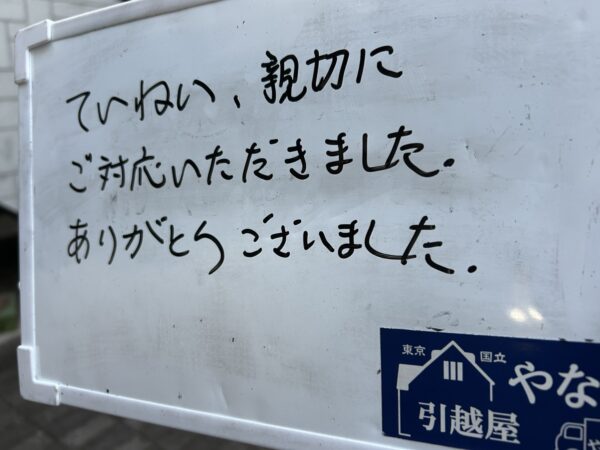 ていねい、親切に
ご対応いただきました.
ありがとうございました.
東京 国立
やな
引越屋
や